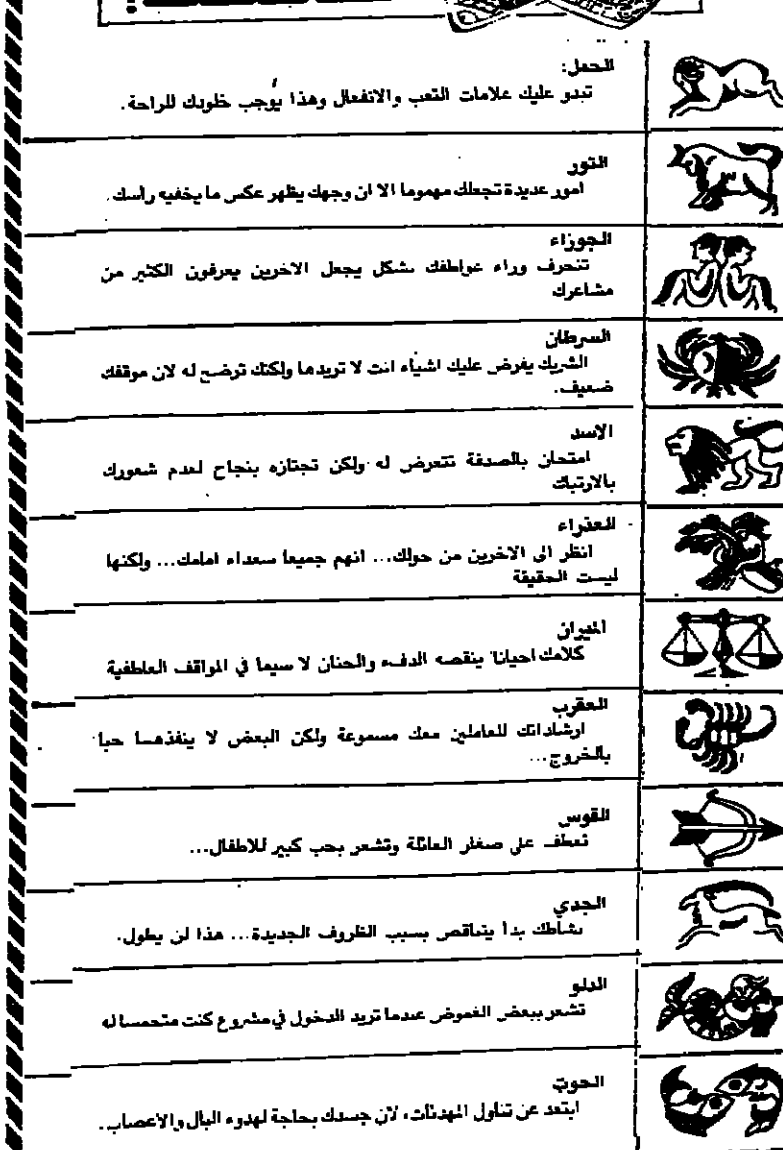 الحمل:
تبدو عليك علامات التعب والانفعال وهذا يوجب خلودك للراحة.
الثور
امور عديدة تجعلك مهموما الا ان وجهك يظهر عكس ما يخفيه رأسك.
الجوزاء
تنجرف وراء عواطفك بشكل يجعل الاخرين يعرفون الكثير من
مشاعرك
السرطان
الشريك يفرض عليك اشياء انت لا تريدها ولكنك ترضخ له لان موقفك
ضعيف.
الاسد
امتحان بالصدفة تتعرض له ولكن تجتازه بنجاح لعدم شعورك
بالارتباك
العذراء
انظر الى الاخرين من حولك... انهم جميعا سعداء امامك... ولكنها
ليست الحقيقة
الميزان
كلامك احيانا ينقصه الدفء والحنان لا سيما في المواقف العاطفية
العقرب
ارشاداتك للعاملين معك مسموعة ولكن البعض لا ينفذها حبا
بالخروج...
القوس
تعطف على صغار العائلة وتشعر بحب كبير للاطفال...
الجدي
نشاطك بدا يتناقص بسبب الظروف الجديدة... هذا لن يطول.
الدلو
تشعر ببعض الغموض عندما تريد الدخول في مشروع كنت متحمسا له
الحوت
ابتعد عن تناول المهدئات، لان جسدك بحاجة لهدوء البال والاعصاب.